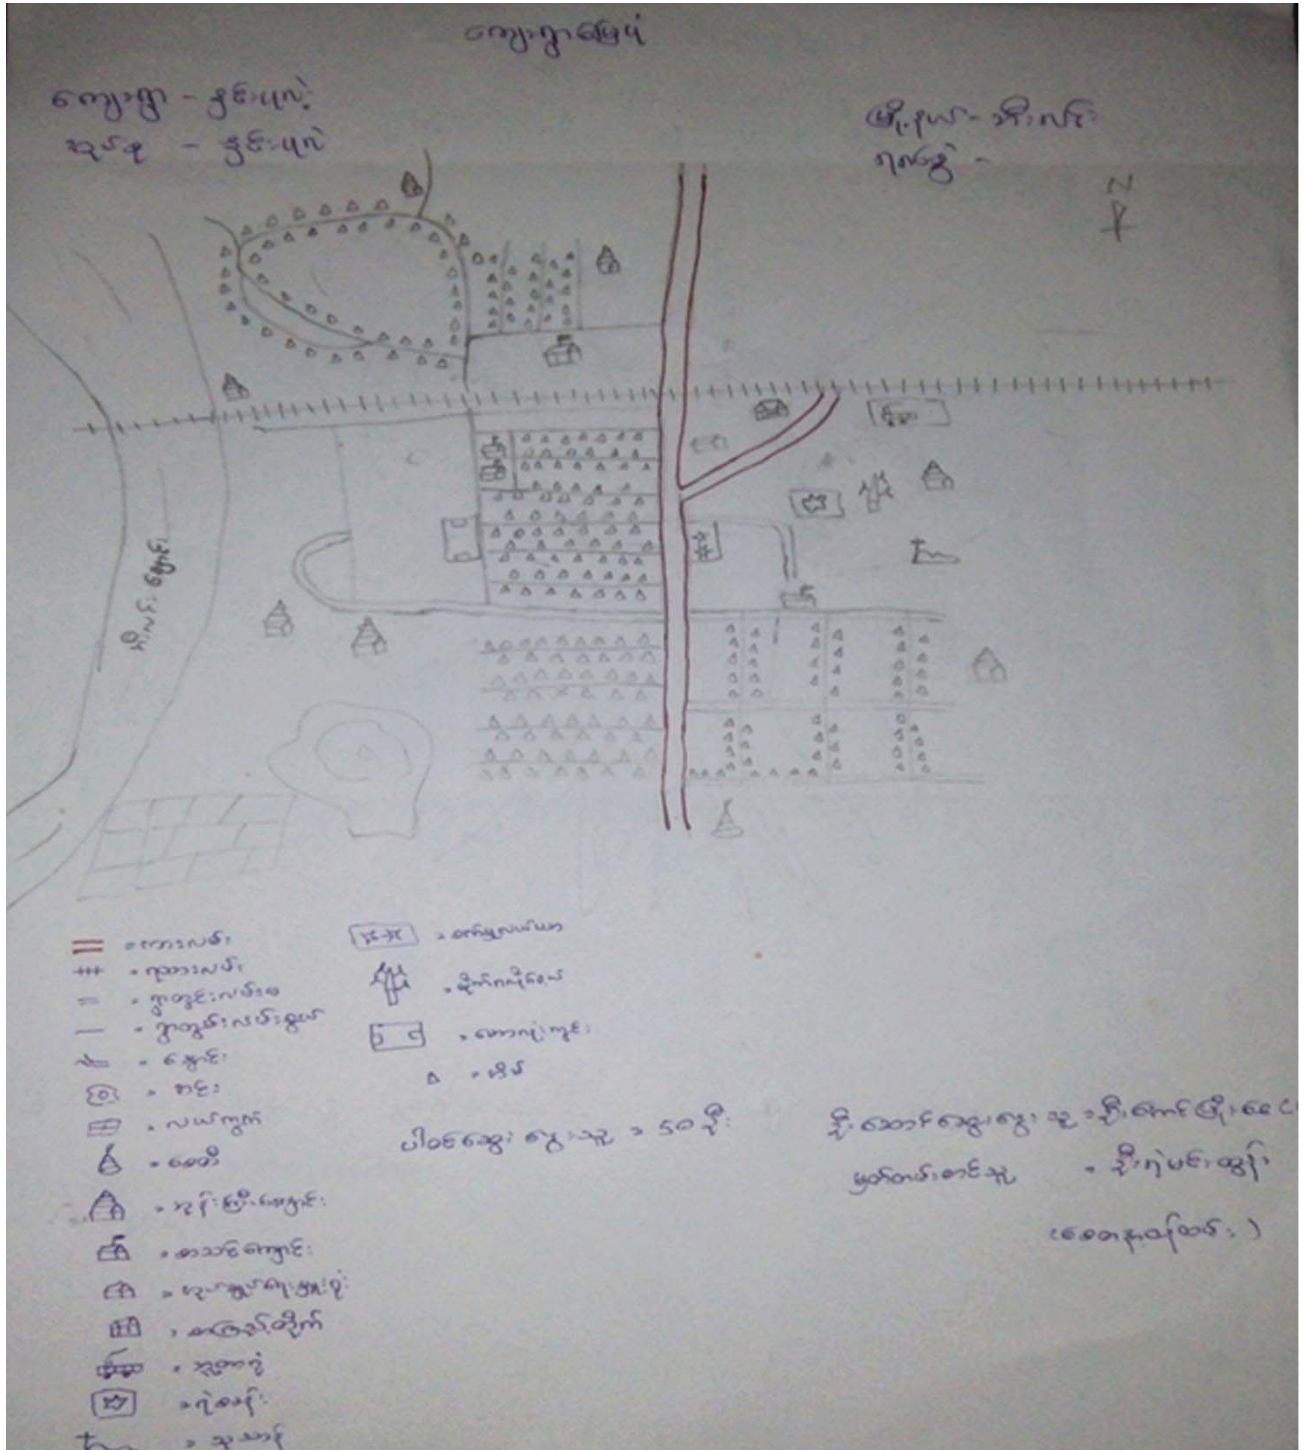 ကျေးရွာမြေပုံ
ကျေးရွာ - နှင်းပုလဲ
အုပ်စု - နှင်းပုလဲ
မြို့နယ် - ဘီးလင်း
ရပ်ကွက် -
N
= ကားလမ်း
= ရထားလမ်း
= ရွာတွင်းလမ်းမ
= ရွာတွင်းလမ်းသွယ်
= ချောင်း
= ကင်း
= လယ်ကွက်
= စေတီ
= ဘုန်းကြီးကျောင်း
= စာသင်ကျောင်း
= အုပ်ချုပ်ရေးမှူးရုံး
= စာကြည့်တိုက်
= ဘူတာရုံ
= ရဲစခန်း
= သုသာန်
= စက်မှုလယ်ယာ
= ဘောလုံးကွင်း
= အိမ်
ပါဝင်ဆွေးနွေးသူ = ၅၀ ဦး
ဦးဆောင်ဆွေးနွေးသူ =
မှတ်တမ်းတင်သူ = ဦးရဲမင်းထွန်း
(စေတနာ့ဝန်ထမ်း)